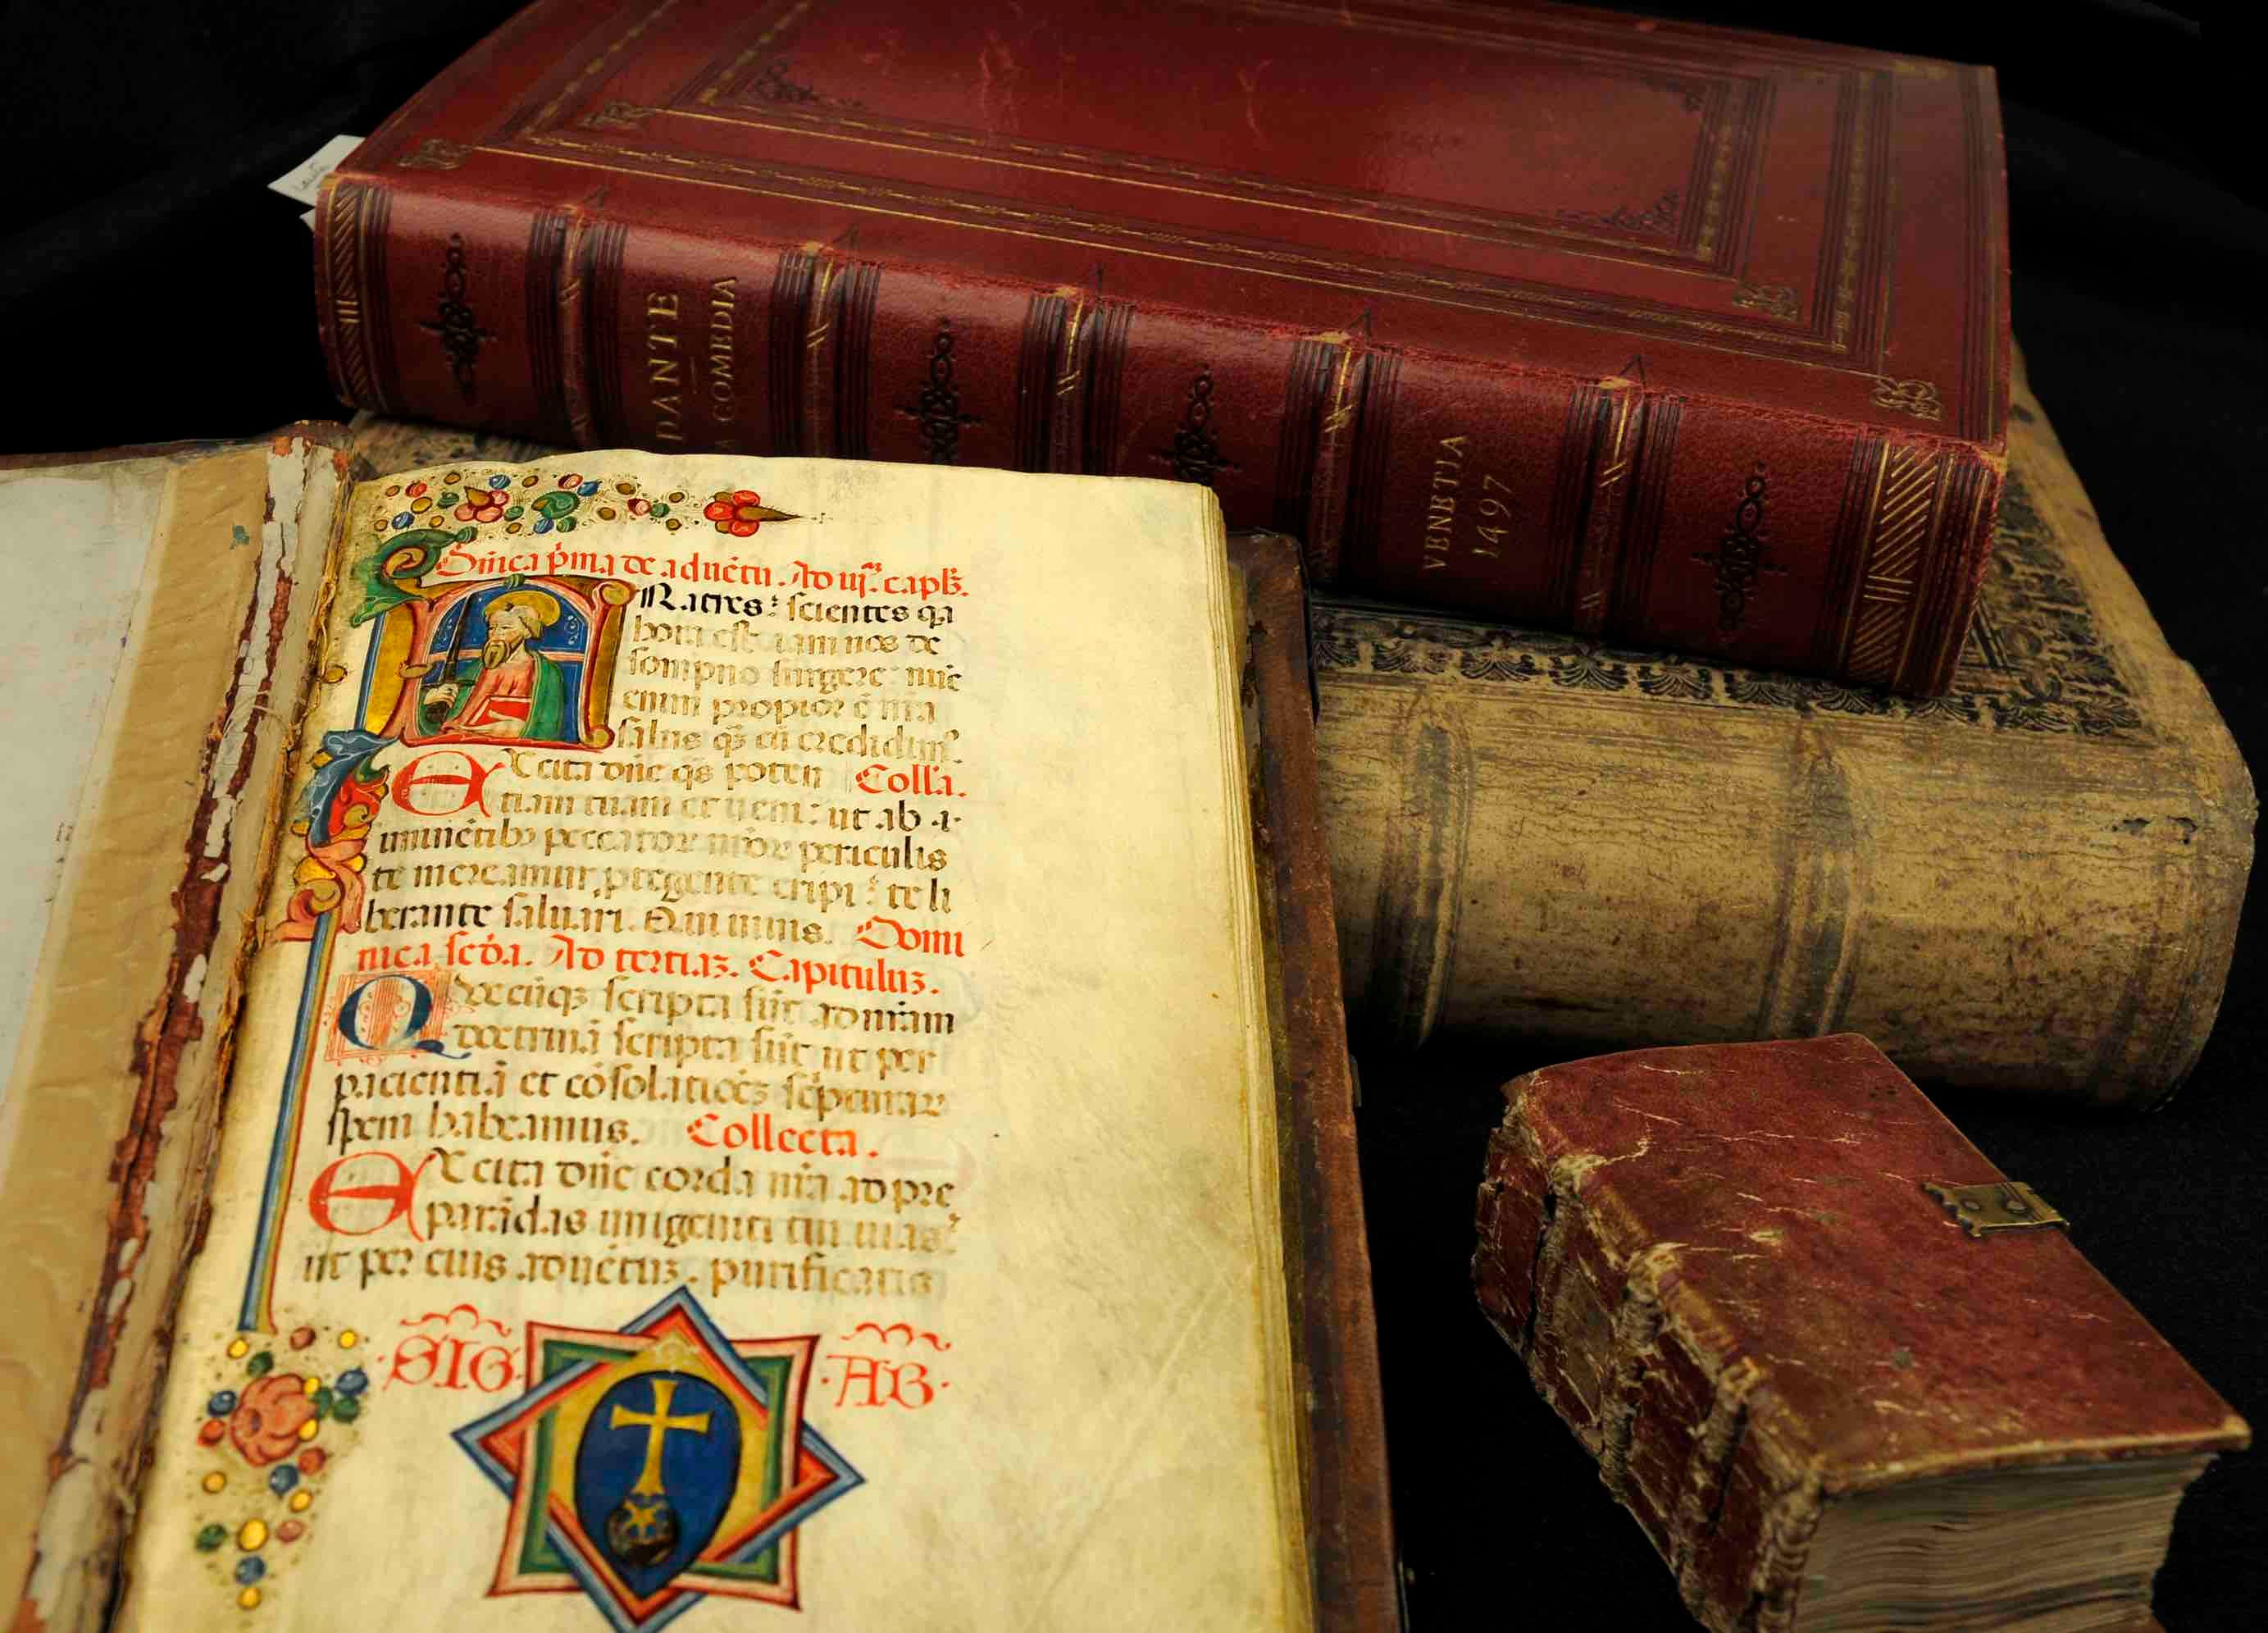 DANTE
A COMEDIA
VENETIA
1497
Dn̄ica p̄ma de aduētu. Ad vj̄. capl̄.
Ratres: scientes qa
hora est iam nos de
sompno surgere: nūc
enim propior ē nr̄a
salus qȝ cū credidim᷒.
EXcita dn̄e qs̄ poten Coll̄a.
tiam tuam et ueni: ut ab .i.
minētibȝ peccatoꝝ nr̄oꝝ periculis
te mereamur, ꝓtegente eripi: te li
berante saluari. Qui uiuis. Domi
nica scd̄a. Ad tertiaȝ. Capituluȝ.
Quecūqȝ scripta sūt ad nr̄am
doctrinā scripta sūt ut per
pacientiā et cōsolationeȝ sc̄pturaꝝ
spem habeamus. Collecta.
EXcita dn̄e corda nr̄a ad pre
parādas unigeniti tui uias:
ut per eius aduētuȝ. purificatis
SIG. .AB.